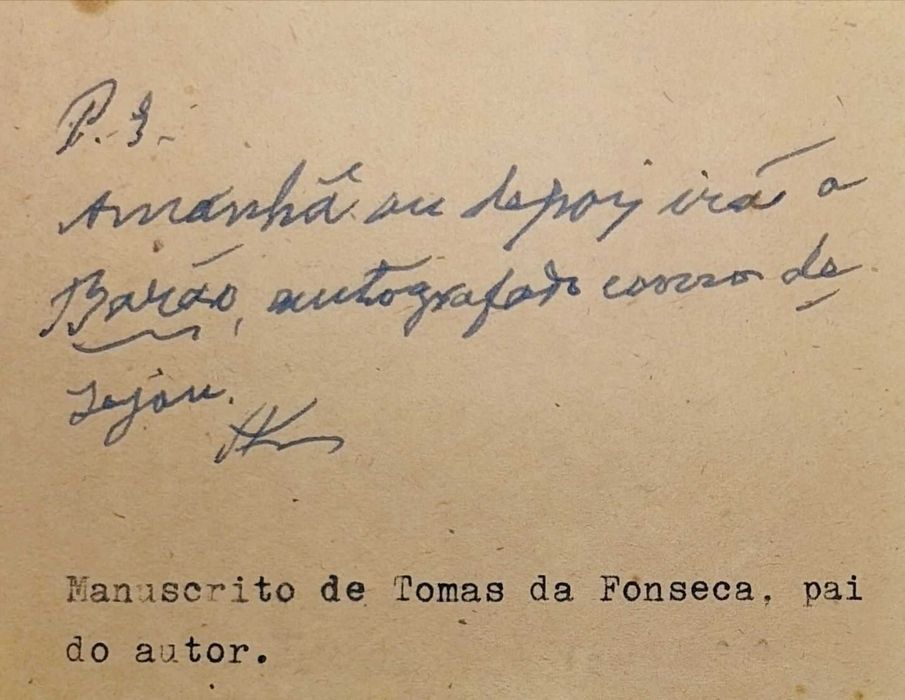 P.S.
Amanhã ou depois irá o
Barão, autografado como de
sejou.
Manuscrito de Tomas da Fonseca, pai
do autor.